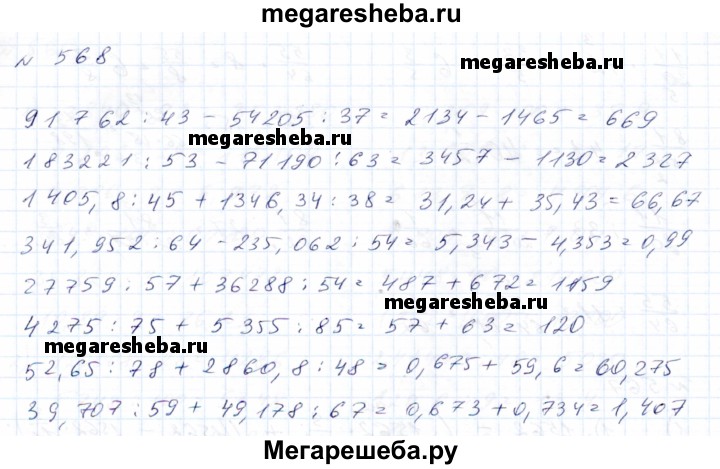 megaresheba.ru
N 568
megaresheba.ru
91762 : 43 - 54205 : 37 = 2134 - 1465 = 669
megaresheba.ru
183221 : 53 - 71190 : 63 = 3457 - 1130 = 2327
1405,8 : 45 + 1346,34 : 38 = 31,24 + 35,43 = 66,67
341,952 : 64 - 235,062 : 54 = 5,343 - 4,353 = 0,99
27759 : 57 + 36288 : 54 = 487 + 672 = 1159
megaresheba.ru
4275 : 75 + 5355 : 85 = 57 + 63 = 120
megaresheba.ru
52,65 : 78 + 2860,8 : 48 = 0,675 + 59,6 = 60,275
39,707 : 59 + 49,178 : 67 = 0,673 + 0,734 = 1,407
Мегарешеба.ру